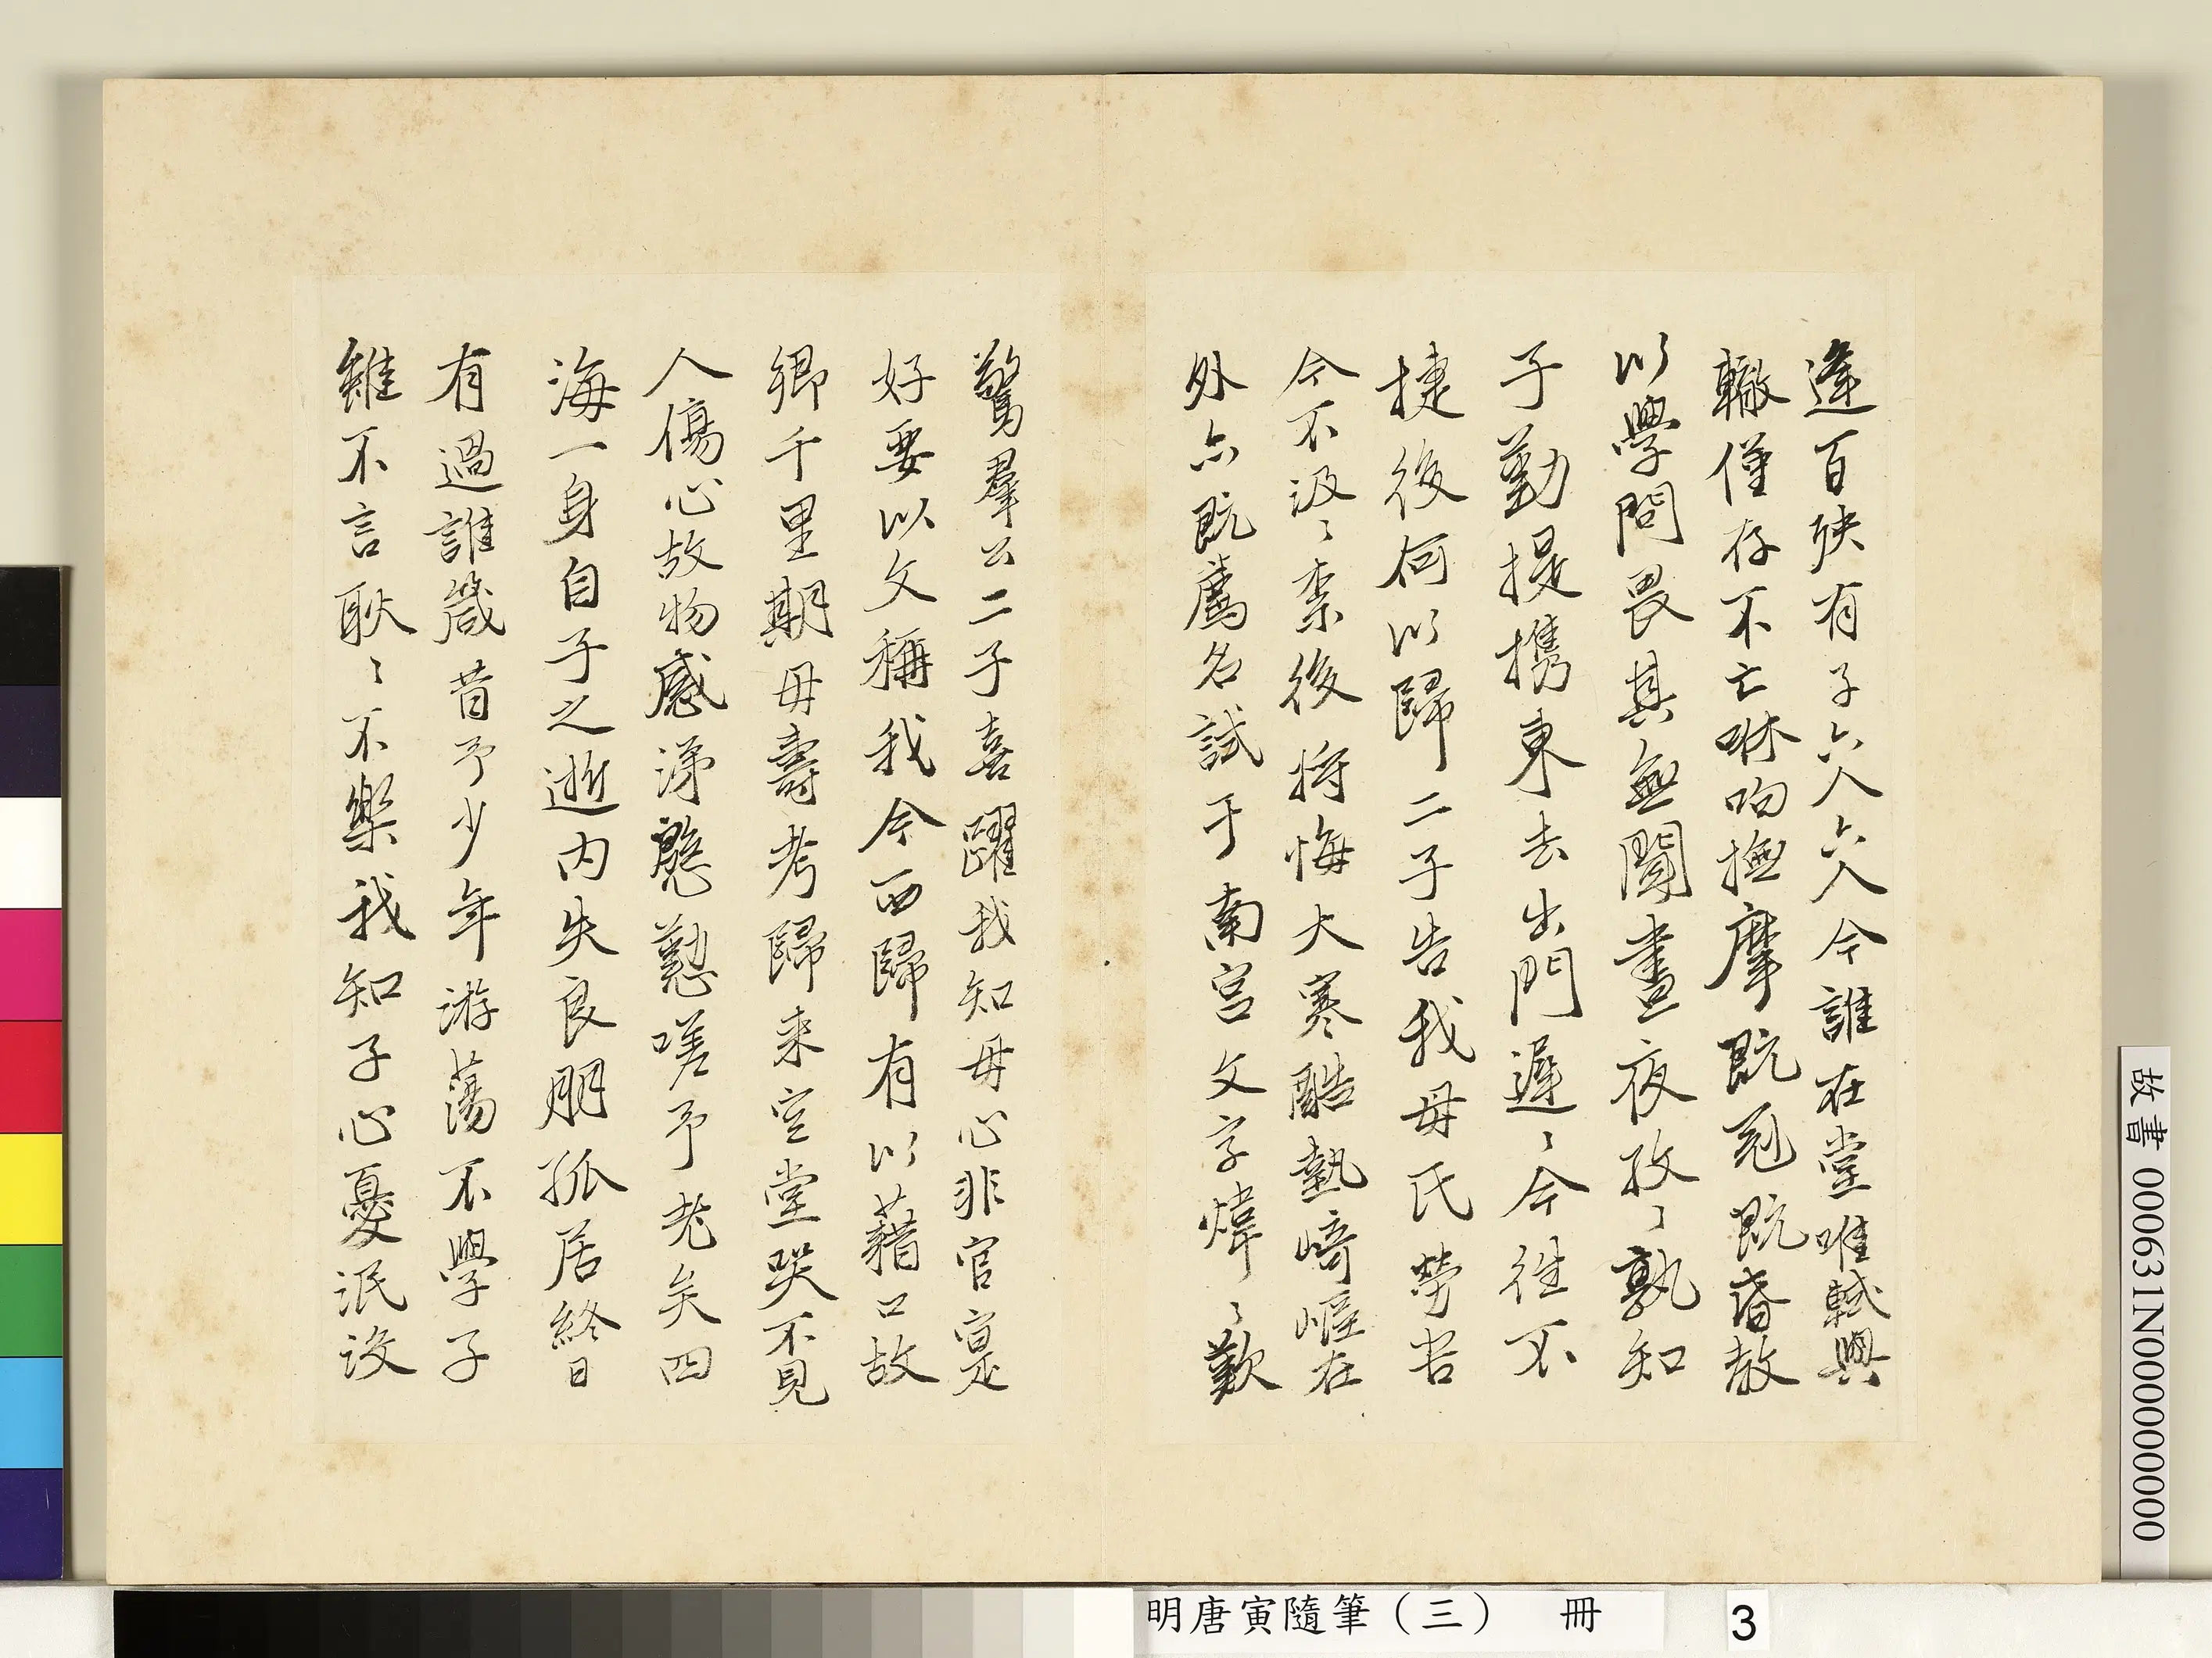 逢百殃有子六人六人今誰在堂唯軾與
轍僅存不亡咻呴撫摩既冠既昏教
以學問畏其無聞晝夜孜〻孰知
子勤提攜東去出門遲〻今往不
捷後何以歸二子告我母氏勞苦
今不汲〻柰後將悔大寒酷熱崎嶇在
外亦既薦名試于南宮文字煒〻歎
驚羣公二子喜躍我知母心非官寔
好要以文稱我今西歸有以藉口故
鄉千里期母壽考歸来空堂哭不見
人傷心故物感涕慇懃嗟予老矣四
海一身自子之逝内失良朋孤居終日
有過誰箴昔予少年游蕩不學子
雖不言耿〻不樂我知子心憂泯没
故書 000631N000000000
明唐寅隨筆（三） 冊
3